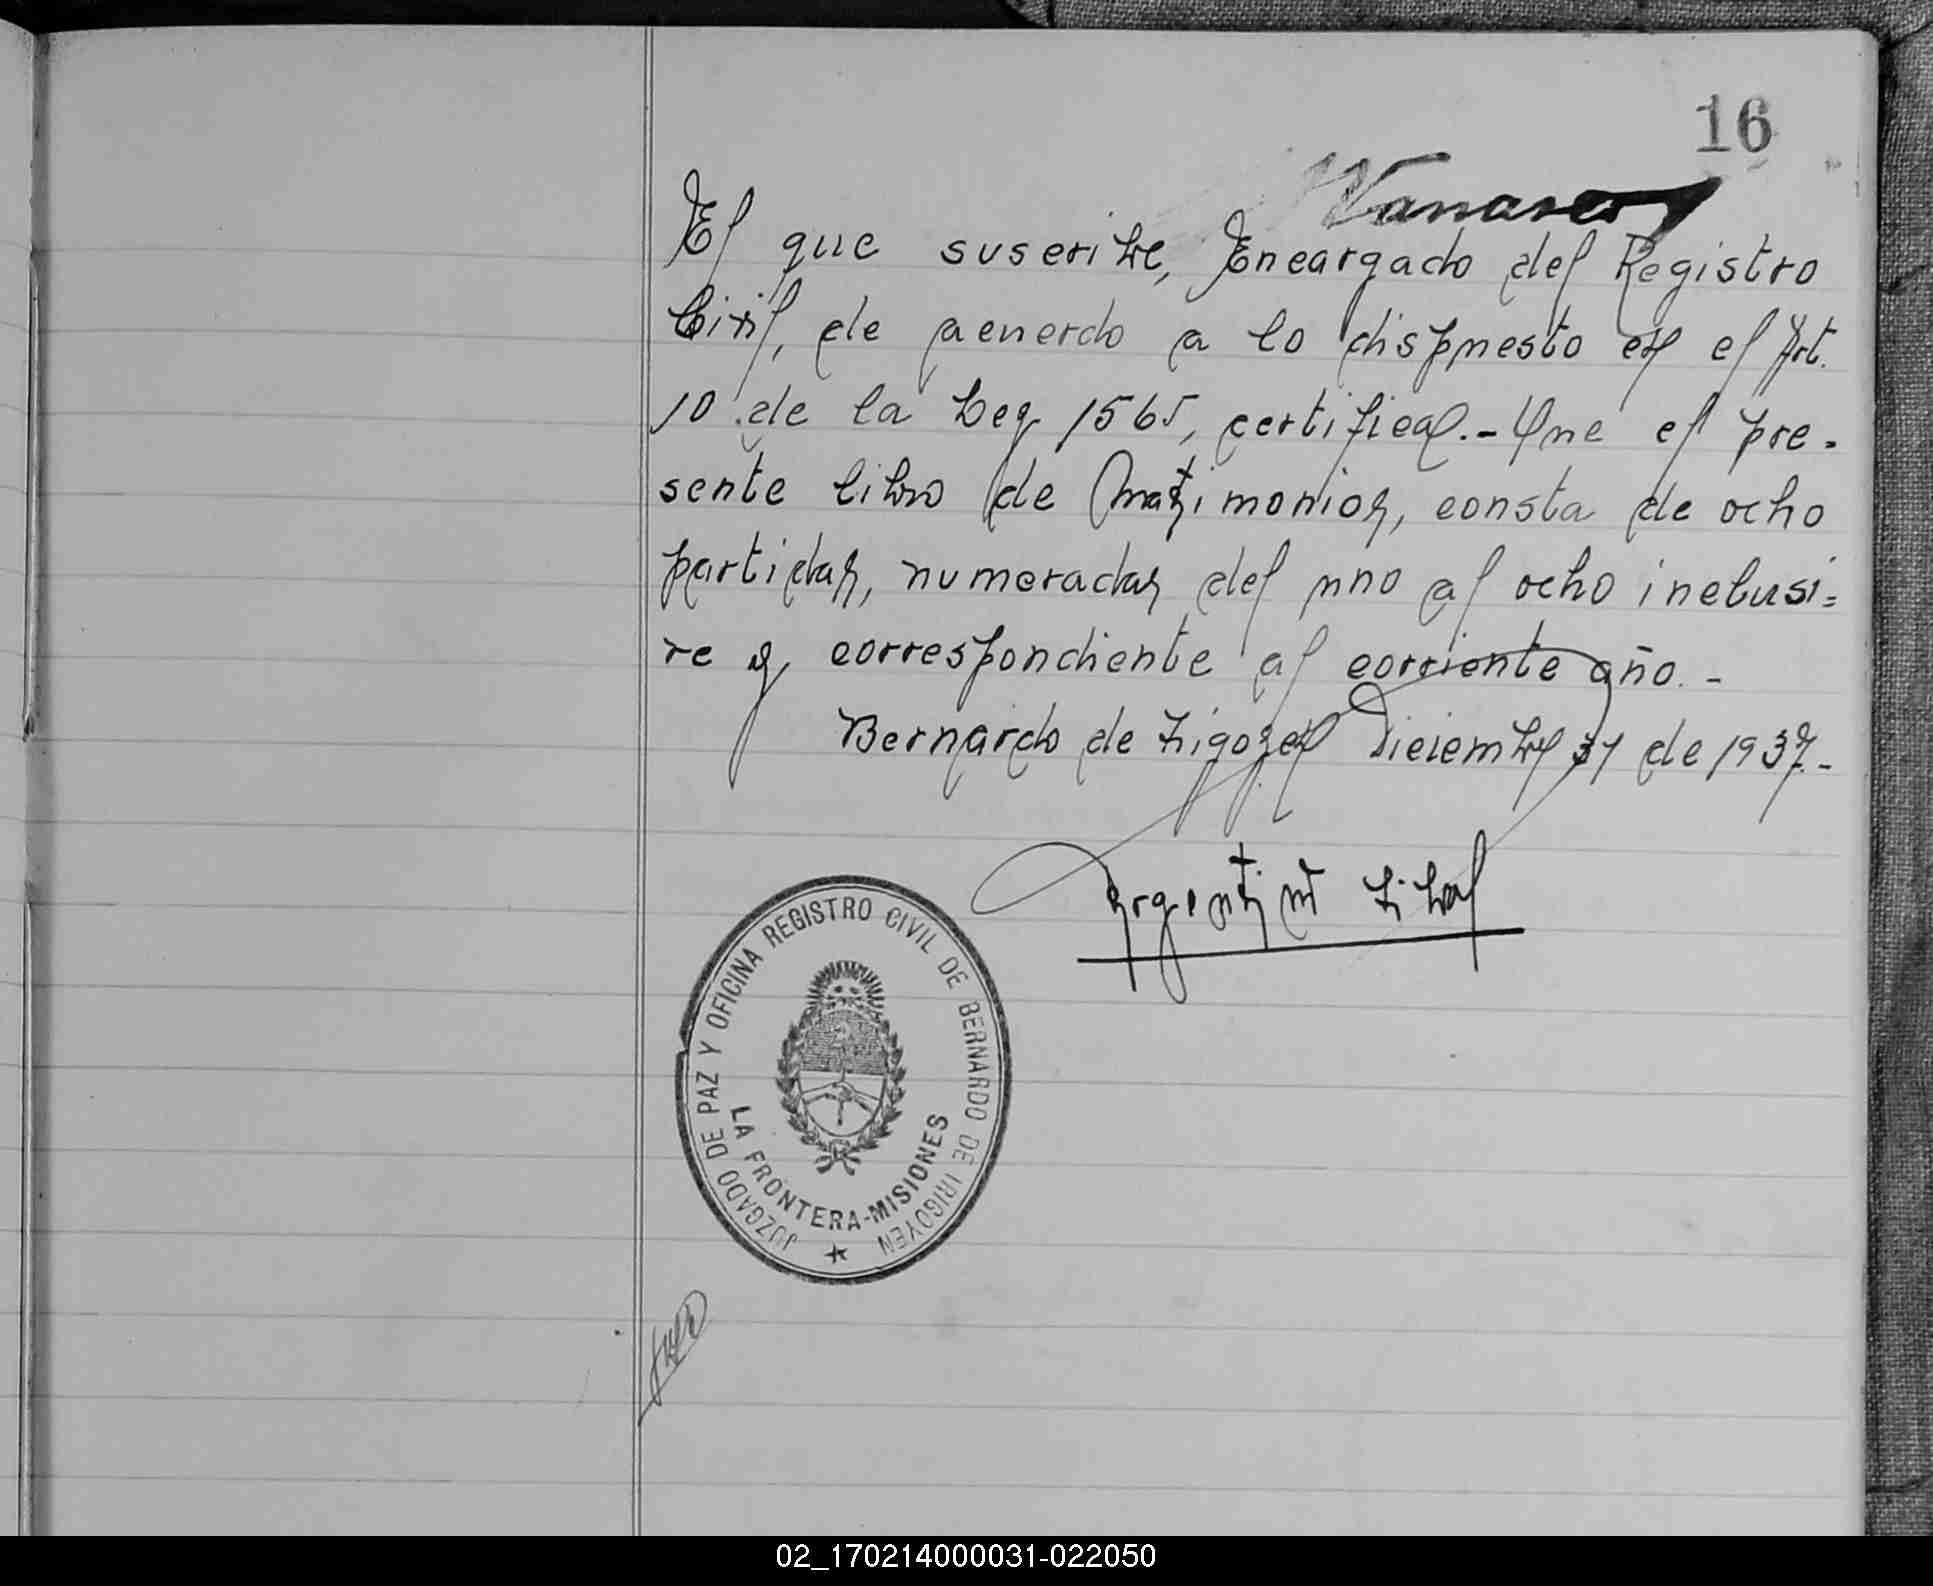 16
El que suscribe, Encargado del Registro
Civil, de acuerdo a lo dispuesto en el Art.
10 de la Ley 1565, certifica.- Que el pre-
sente libro de Matrimonios, consta de ocho
partidas, numeradas del uno al ocho inclusi=
ve y correspondiente al corriente año.-
Bernardo de Irigoyen Diciembre 31 de 1937.-
JUZGADO DE PAZ Y OFICINA REGISTRO CIVIL DE BERNARDO DE IRIGOYEN
LA FRONTERA-MISIONES
02_170214000031-022050